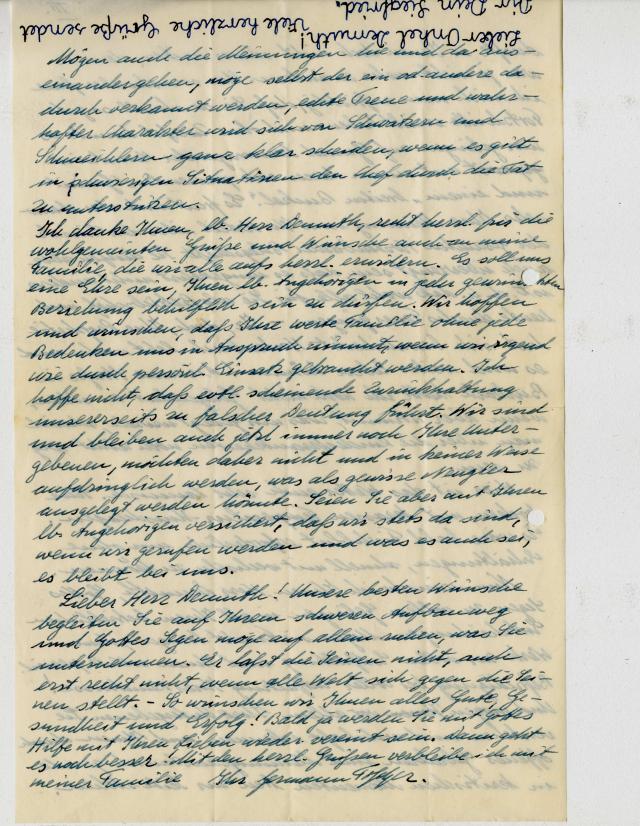 Lieber Onkel Demuth! Viele herzliche Grüße sendet
Dir Dein Siegfried.
Mögen auch die Meinungen hie und da aus-
einandergehen, möge selbst der ein od. andere da-
durch verkannt werden, echte Treue und wahr-
hafter Charakter wird sich von Schwätzern und
Schmeichlern ganz klar scheiden, wenn es gilt
in schwierigen Situationen den Chef durch die Tat
zu unterstützen.
Ich danke Ihnen, lb. Herr Demuth, recht herzl. für die
wohlgemeinten Grüße und Wünsche auch an meine
Familie, die wir alle aufs herzl. erwidern. Es soll uns
eine Ehre sein, Ihren lb. Angehörigen in jeder gewünschten
Beziehung behilflich sein zu dürfen. Wir hoffen
und wünschen, daß Ihre werte Familie ohne jede
Bedenken uns in Anspruch nimmt, wenn wir irgend
wie durch persönl. Einsatz gebraucht werden. Ich
hoffe nicht, daß evtl. scheinende Zurückhaltung
unsererseits zu falscher Deutung führt. Wir sind
und bleiben auch jetzt immer noch Ihre Unter-
gebenen, möchten daher nicht und in keiner Weise
aufdringlich werden, was als gewisse Neugier
ausgelegt werden könnte. Seien Sie aber mit Ihren
lb. Angehörigen versichert, daß wir stets da sind,
wenn wir gerufen werden und was es auch sei,
es bleibt bei uns.
Lieber Herr Demuth! Unsere besten Wünsche
begleiten Sie auf Ihrem schweren Aufbauweg
und Gottes Segen möge auf allem ruhen, was Sie
unternehmen. Er läßt die Seinen nicht, auch
erst recht nicht, wenn alle Welt sich gegen die Sei-
nen stellt. - So wünschen wir Ihnen alles Gute, Ge-
sundheit und Erfolg! Bald ja werden Sie mit Gottes
Hilfe mit Ihren Lieben wieder vereint sein. Dann geht
es noch besser! Mit den herzl. Grüßen verbleibe ich mit
meiner Familie Ihr Hermann